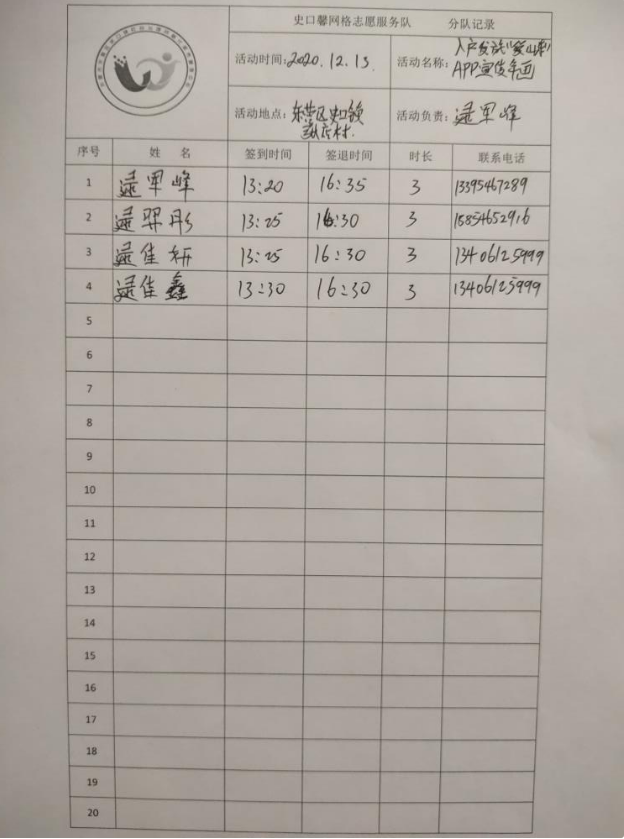 史口馨网格志愿服务队 分队记录
活动时间:2020.12.13.
活动名称:入户发放"爱山东"
APP宣传年画
活动地点:东营区史口镇
村.
活动负责:逯军峰
序号 姓 名 签到时间 签退时间 时长 联系电话
1 逯军峰 13:20 16:35 3 13395467289
2 逯羿彤 13:25 16:30 3 15854652916
3 逯佳妍 13:25 16:30 3 13406125999
4 逯佳鑫 13:30 16:30 3 13406125999
5
6
7
8
9
10
11
12
13
14
15
16
17
18
19
20